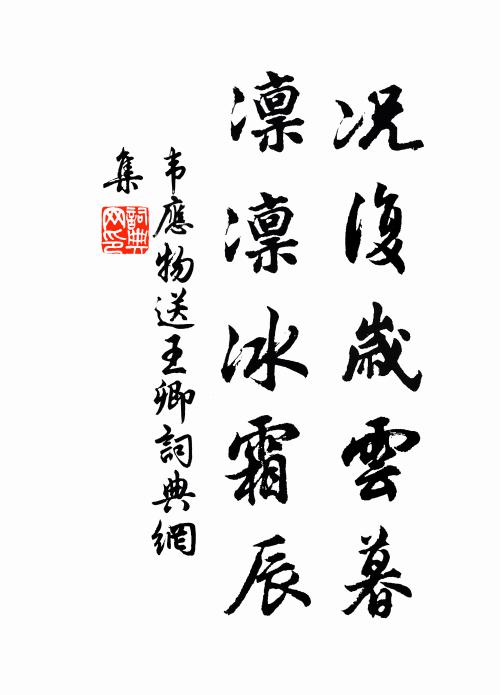 况復歲雲暮
凛凛冰霜辰
韦應物送王卿詞典網
集
詞典网印